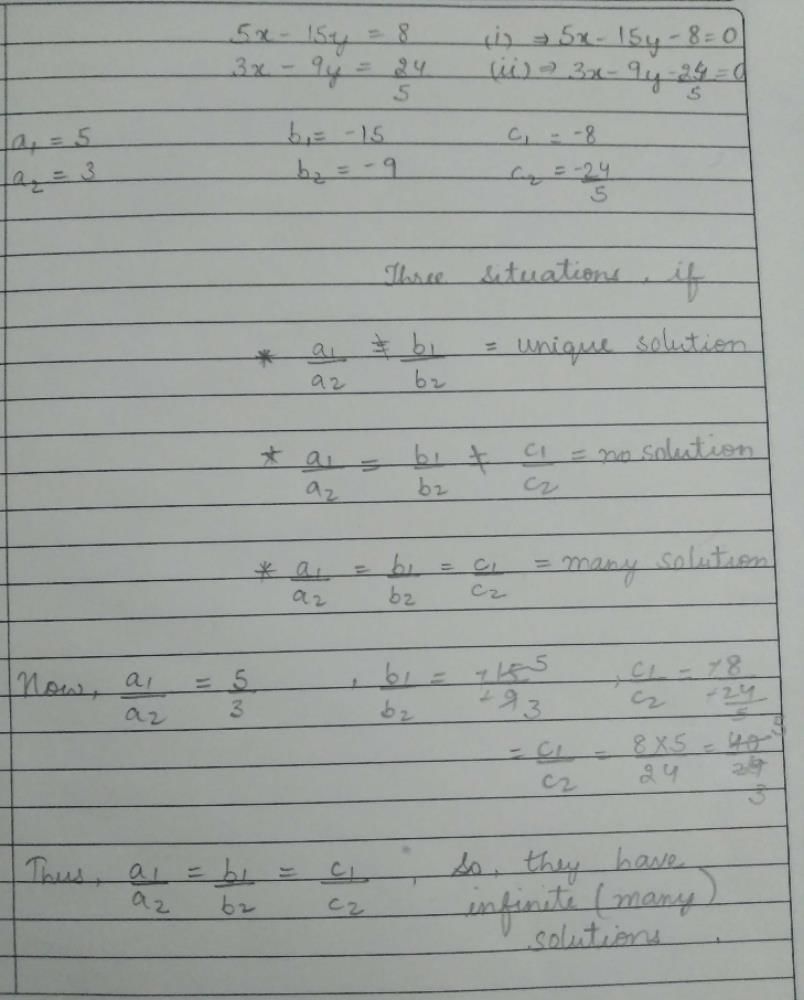 5x - 15y = 8 (i) ⇒ 5x - 15y - 8 = 0
3x - 9y = 24/5 (ii) ⇒ 3x - 9y - 24/5 = 0
a₁ = 5 b₁ = -15 c₁ = -8
a₂ = 3 b₂ = -9 c₂ = -24/5
Three situations, if
* a₁/a₂ ≠ b₁/b₂ = unique solution
* a₁/a₂ = b₁/b₂ ≠ c₁/c₂ = no solution
* a₁/a₂ = b₁/b₂ = c₁/c₂ = many solution
Now, a₁/a₂ = 5/3 , b₁/b₂ = -15/-9 5/3 , c₁/c₂ = -8/(-24/5)
= c₁/c₂ = 8×5/24 = 40/24 5/3
Thus, a₁/a₂ = b₁/b₂ = c₁/c₂ , So, they have
infinite (many)
solutions.